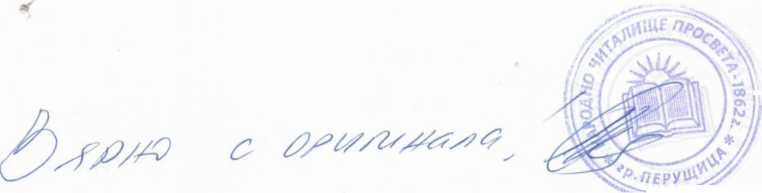 Вярно с оригинала,
НАРОДНО ЧИТАЛИЩЕ ПРОСВЕТА-1862г. * гр. ПЕРУЩИЦА *